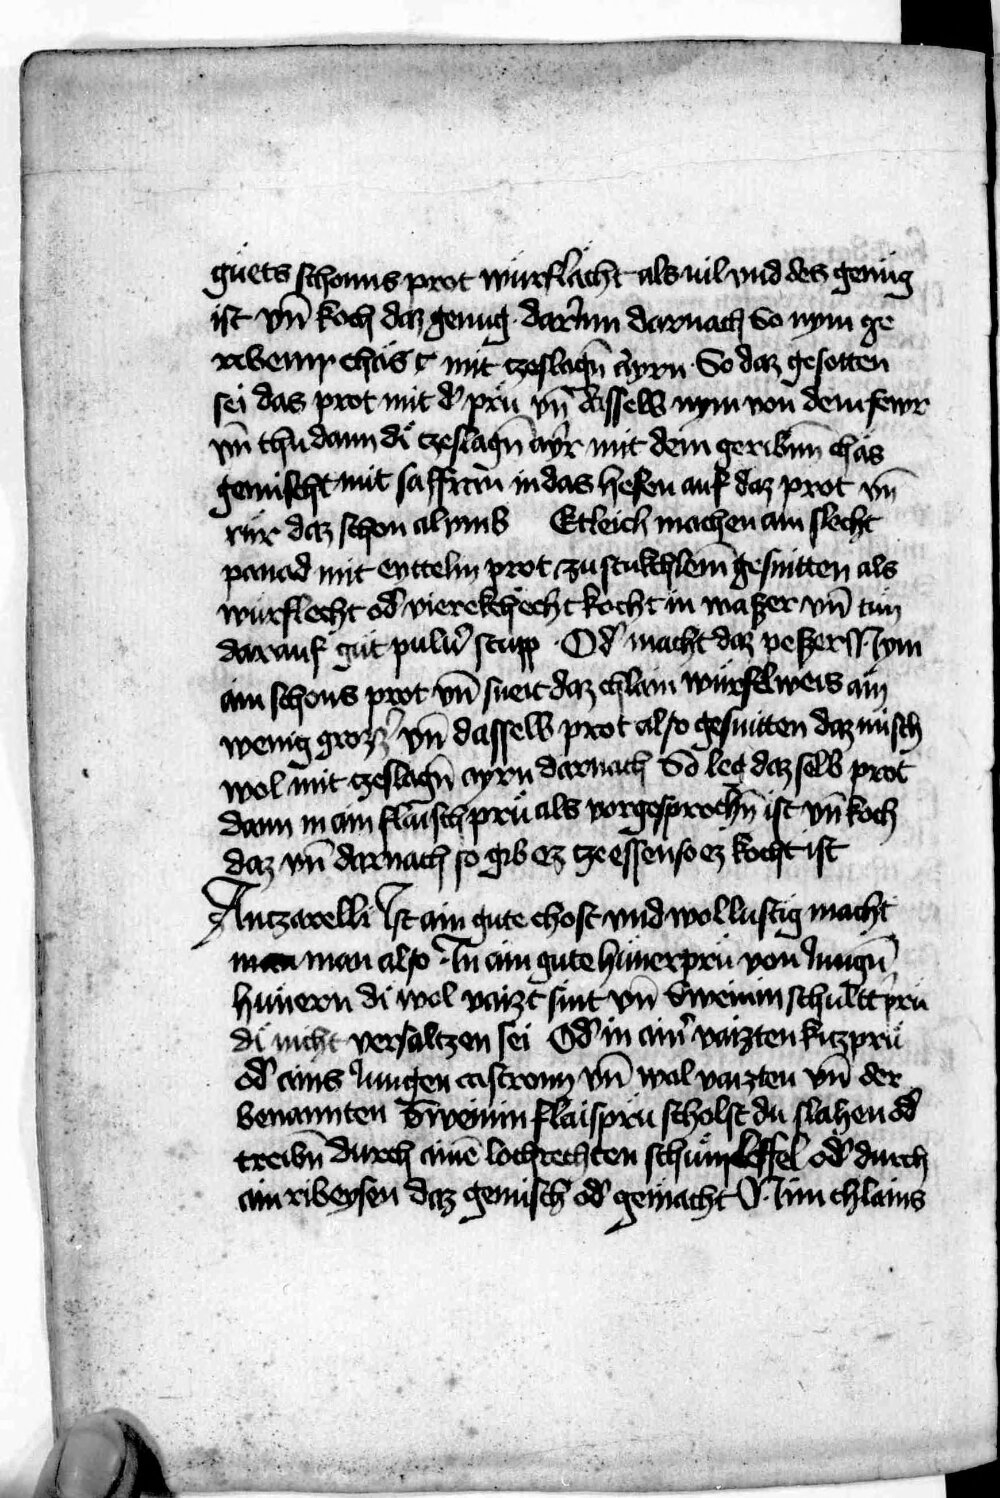 guets schonns prot würflächt als uil vnd des genüg
ist vn̄ koch daz genug · darjnn darnach So nym ge
rebemp chäs mit czeslagn̄ ayrn · So daz gesotten
sei das prot mit d' prü vn̄ dasselb nym von dem fewr
vn̄ thu dann di czeslagn̄ ayr mit dem geribnn̄ chäs
gemischt mit saffran in das hefen auf daz prot vn̄
rür daz schon al vmb Etleich machen ain slecht
panad mit eyttelm prot zu stukchlein̄ gesnitten als
würflecht od' vierekchecht kocht in waszer vn̄ tün
darauf güt pulu' stupp · Od' macht daz peszer Nym
ain schons prot vn̄ sneit daz chlain würfelweis ain
wenig grozz' vn̄ dasselb prot also gesnitten daz misch
wol mit czeslagn̄ ayrn darnach So leg daz selb prot
dann in ain flaisch prü als vorgesprochn̄ ist vn̄ koch
daz vn̄ darnach so gib ez cze essen so ez kocht ist
Antzarelli Ist ain gute chost vnd wol lustig macht
man man also · In ain gute hünerprü von jungn̄
hünern di wol vaizt sint vn̄ Sweinin schultt' prü
di nicht versaltzen sei Od' in ain' vaizten kizprü
od' ains jungen castronn vn̄ wol vaizten vn̄ der
benannten Sweinin flaisprü scholst du slahen od'
treibn̄ durch ainē lochrechten schüm leffel od' durch
ain ribeysen daz gemisch od' gemacht Nim chlains